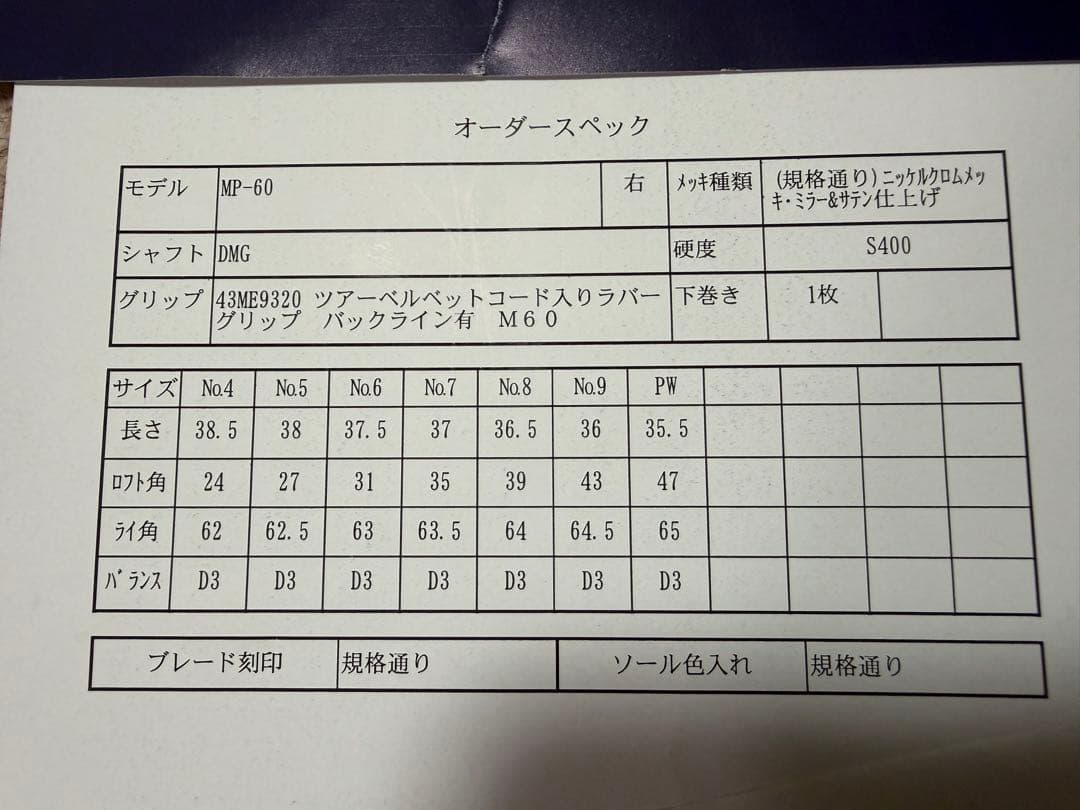 オーダースペック
モデル MP-60 右 ﾒｯｷ種類 (規格通り)ﾆｯｹﾙｸﾛﾑﾒｯ
ｷ・ﾐﾗｰ&ｻﾃﾝ仕上げ
シャフト DMG 硬度 S400
グリップ 43ME9320 ツアーベルベットコード入りラバー 下巻き 1枚
グリップ バックライン有 Ｍ６０
サイズ №4 №5 №6 №7 №8 №9 PW
長さ 38.5 38 37.5 37 36.5 36 35.5
ﾛﾌﾄ角 24 27 31 35 39 43 47
ﾗｲ角 62 62.5 63 63.5 64 64.5 65
ﾊﾞﾗﾝｽ D3 D3 D3 D3 D3 D3 D3
ブレード刻印 規格通り ソール色入れ 規格通り